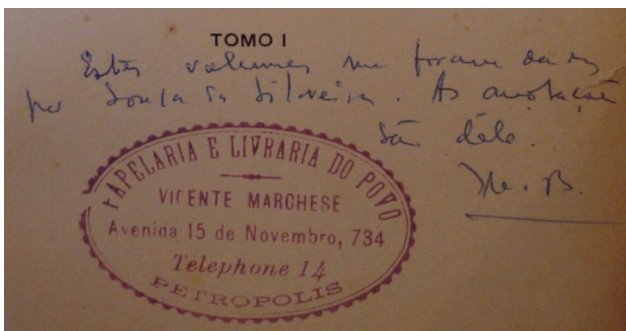 TOMO I
Estes volumes me foram dados
por Sousa da Silveira. As anotações
são dêle.
M. B.
PAPELARIA E LIVRARIA DO POVO
VICENTE MARCHESE
Avenida 15 de Novembro, 734
Telephone 14
PETROPOLIS